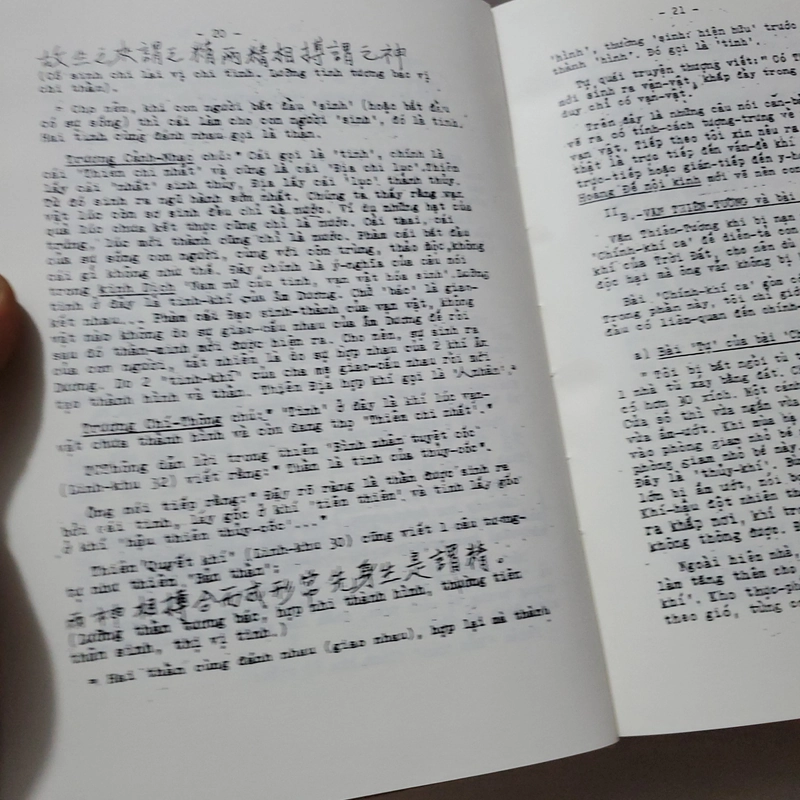 - 20 -
故生之來謂之精兩精相搏謂之神
(Cố sinh chi lai vị chi tinh. Lưỡng tinh tương bác vị
chi thần).
" Cho nên, khi con người bắt đầu 'sinh' (hoặc bắt đầu
có sự sống) thì cái làm cho con người 'sinh', đó là tinh.
Hai tinh cùng đánh nhau gọi là thần.
Trương Cảnh-Nhạc chú:" Cái gọi là 'tinh', chính là
cái 'Thiên chi nhất' và cũng là cái 'Địa chi lục'.Thiên
lấy cái 'nhất' sinh thủy, Địa lấy cái 'lục' thành thủy.
Từ đó sinh ra ngũ hành sớm nhất. Chúng ta thấy rằng vạn
vật lúc còn sơ sinh đều chỉ là nước. Ví dụ những hạt của
quả lúc chưa kết thực cũng chỉ là nước. Cái thai, cái
trứng, lúc mới thành cũng chỉ là nước. Phàm cái bắt đầu
của sự sống con người, cùng với côn trùng, thảo mộc,không
cái gì không như thế. Đây chính là ý-nghĩa của câu nói
trong kinh Dịch 'Nam nữ cấu tinh, vạn vật hóa sinh'.Lưỡng
tinh ở đây là tinh-khí của Âm Dương. Chữ 'bác' là giao-
kết nhau... Phàm cái Đạo sinh-thành của vạn vật, không
vật nào không do sự giao-cấu nhau của Âm Dương để rồi
sau đó thần-minh mới được hiện ra. Cho nên, sự sinh ra
của con người, tất nhiên là do sự hợp nhau của 2 khí Âm
Dương. Do 2 "tinh-khí" của cha mẹ giao-cấu nhau rồi mới
tạo thành hình và thần. Thiên Địa hợp khí gọi là 'nhân'."
Trương Chí-Thông chú:" 'Tinh' ở đây là khí lúc vạn-
vật chưa thành hình và còn đang thọ "Thiên chi nhất"."
dẫn lời trong thiên "Bình nhân tuyệt cốc"
(Linh-khu 32) viết rằng:" Thần là tinh của thủy-cốc".
Ông nói tiếp rằng:" Đây rõ ràng là thần được sinh ra
bởi cái tinh, lấy gốc ở khí 'tiên thiên' và tinh lấy gốc
ở khí 'hậu thiên thủy-cốc'..."
Thiên "Quyết khí" (Linh-khu 30) cũng viết 1 câu tương-
tự như thiên "Bản thần":
兩神相搏合而成形常先身生是謂精。
(Lưỡng thần tương bác, hợp nhi thành hình, thường tiên
thân sinh, thị vị tinh.)
" Hai thần cùng đánh nhau (giao nhau), hợp lại mà thành
- 21 -
'hình', thường 'sinh' hiện hữu' trước
thành 'hình'. Đó gọi là 'tinh'.
Tự quái truyện thượng viết:" Có T
mới sinh ra vạn-vật, khắp đầy trong
duy chỉ có vạn-vật.
Trên đây là những câu nói căn-bả
vẽ ra có tính-cách tượng-trưng về
vạn vật. Tiếp theo tôi xin nêu ra
thật là trực tiếp đến vấn-đề khí
trực-tiếp hoặc gián-tiếp đến y-họ
Hoàng Đế nội kinh mới về nên con
II B.-VĂN THIÊN-TƯỜNG và bài
Văn Thiên-Tường khi bị nạn
'Chính-khí ca' để diễn-tả con
khí của Trời Đất, cho nên dù
độc hại mà ông vẫn không bị
Bài 'Chính-khí ca' gồm có
Trong phần này, tôi chỉ giới
đầu có liên-quan đến chính-
a) Bài 'Tự' của bài 'Ch
" Tôi bị bắt ngồi tù t
1 nhà tù xây bằng đất. C
có hơn 30 xích. Một cánh
Cửa sổ thì vừa ngắn vừa
vừa ẩm-ướt. Khi mùa hè
vào phòng giam nhỏ bé
phòng giam nhỏ bé này
Đây là 'thủy-khí'. Bùn
lớn bị ẩm ướt, nổi bọ
Khí-hậu đột nhiên tha
ra khắp nơi, khí tr
không thông được. Đ
Ngoài hiên nhà,
làm tăng thêm cho
khí'. Kho thực-ph
theo gió, từng c